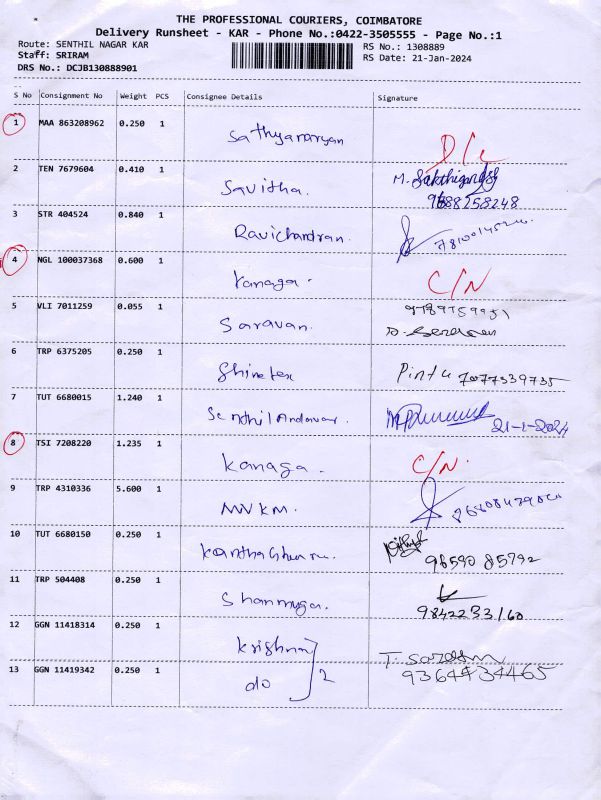 THE PROFESSIONAL COURIERS, COIMBATORE
Delivery Runsheet - KAR - Phone No.:0422-3505555 - Page No.:1
Route: SENTHIL NAGAR KAR
RS No.: 1308889
Staff: SRIRAM
RS Date: 21-Jan-2024
DRS No.: DCJB130888901
S No Consignment No Weight PCS Consignee Details Signature
1 MAA 863208962 0.250 1 Sathyanarayan D/L
2 TEN 7679604 0.410 1 Savitha. M. 9688258248
3 STR 404524 0.840 1 Ravichandran.
4 NGL 100037368 0.600 1 Kanaga. C/N
5 VLI 7011259 0.055 1 Saravan.
6 TRP 6375205 0.250 1 Pintu 7077539735
7 TUT 6680015 1.240 1 Senthil Andavar. 21-1-2024
8 TSI 7208220 1.235 1 Kanaga. C/N.
9 TRP 4310336 5.600 1 MVKM.
10 TUT 6680150 0.250 1 96590 85792
11 TRP 504408 0.250 1 Shanmuga. 9842233160
12 GGN 11418314 0.250 1 Krishna T.
13 GGN 11419342 0.250 1 do 2 9364434465